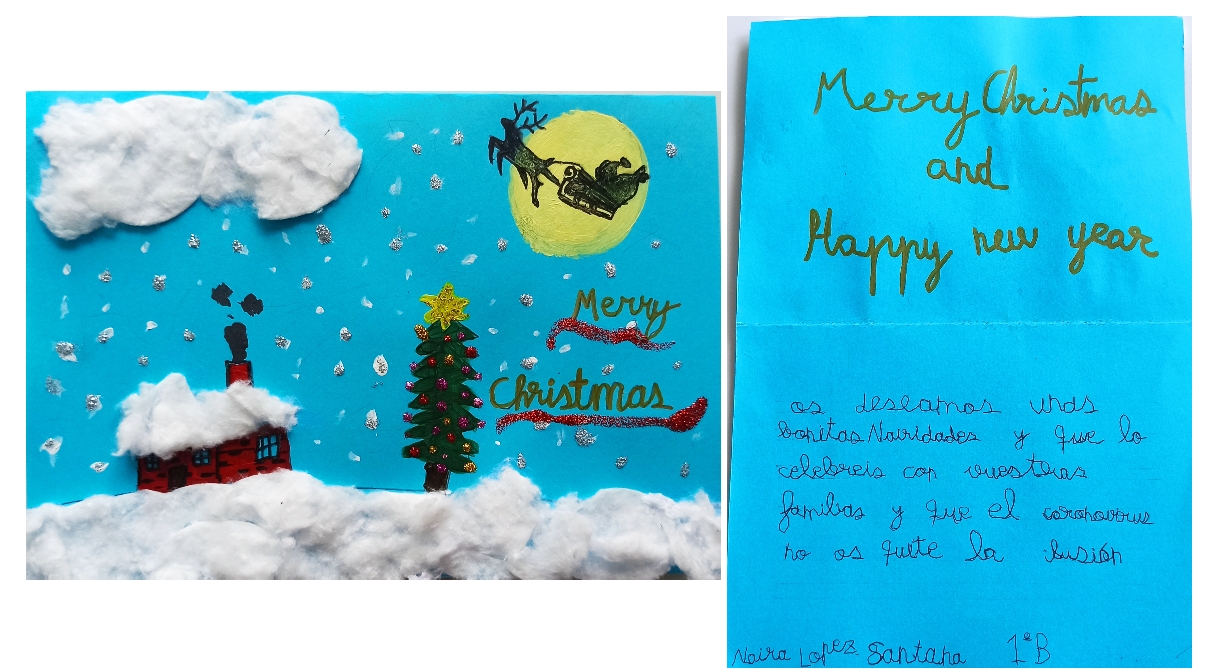 Merry
Christmas
Merry Christmas
and
Happy new year
os deseamos unas
bonitas Navidades y que lo
celebreis con vuestras
familias y que el coronavorus
no os quite la ilusión
Naira Lopez Santana 1ºB